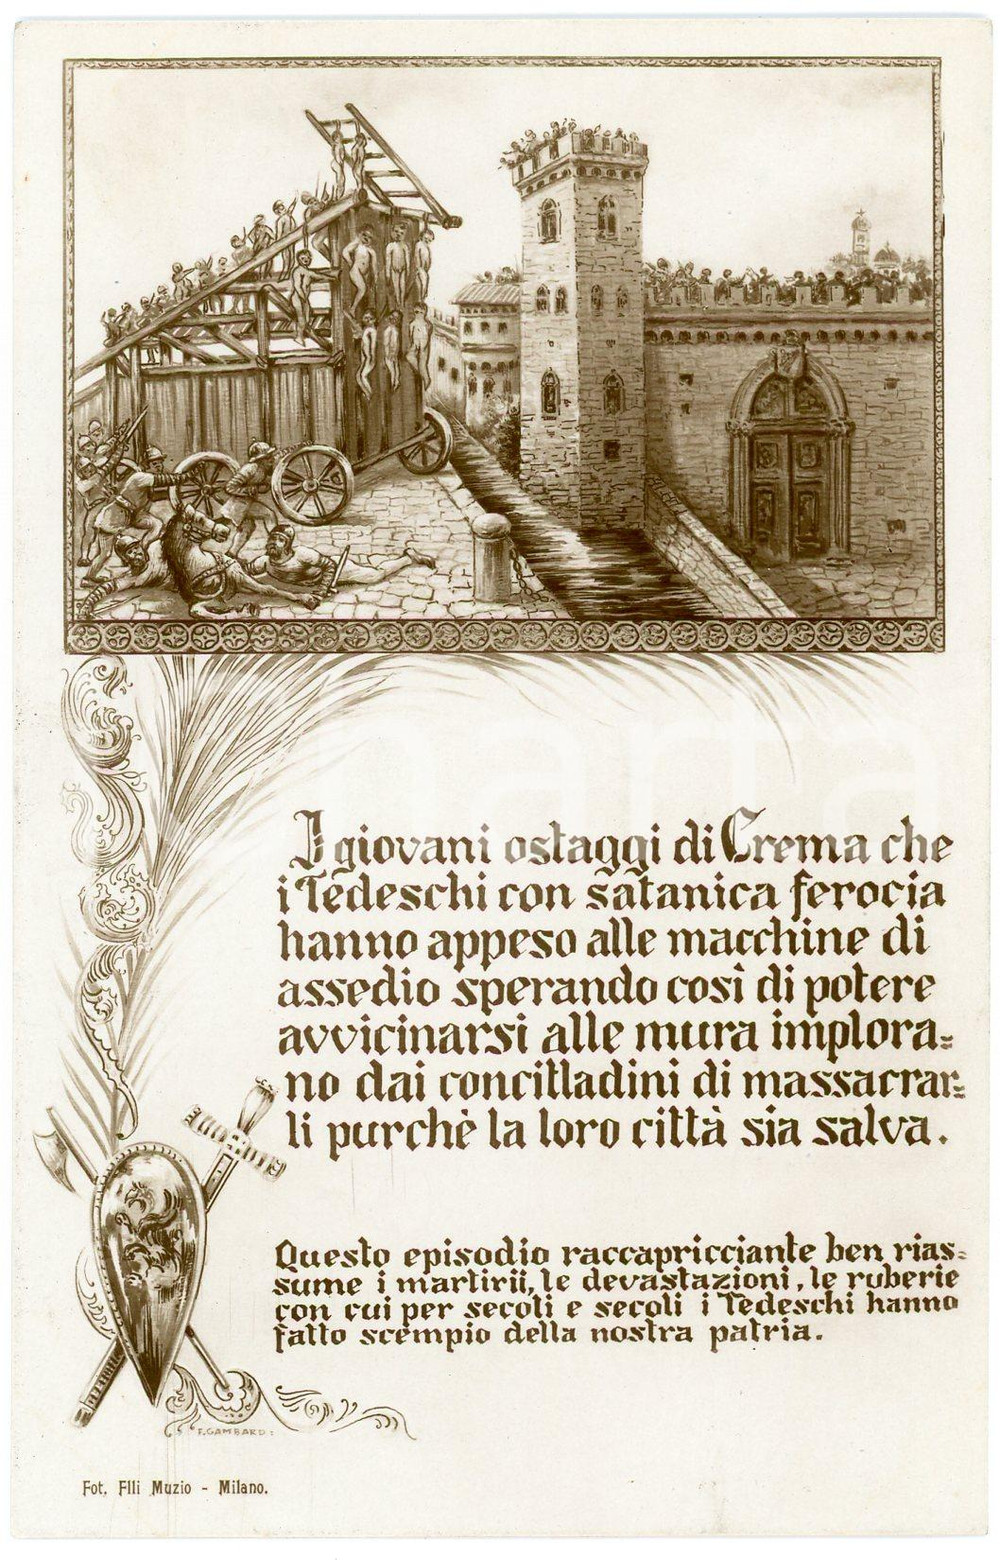 I giovani ostaggi di Crema che
i Tedeschi con satanica ferocia
hanno appeso alle macchine di
assedio sperando così di potere
avvicinarsi alle mura implora=
no dai concittadini di massacrar=
li purchè la loro città sia salva.
Questo episodio raccapricciante ben rias=
sume i martirii, le devastazioni, le ruberie
con cui per secoli e secoli i Tedeschi hanno
fatto scempio della nostra patria.
F. GAMBARDI
Fot. Flli Muzio - Milano.